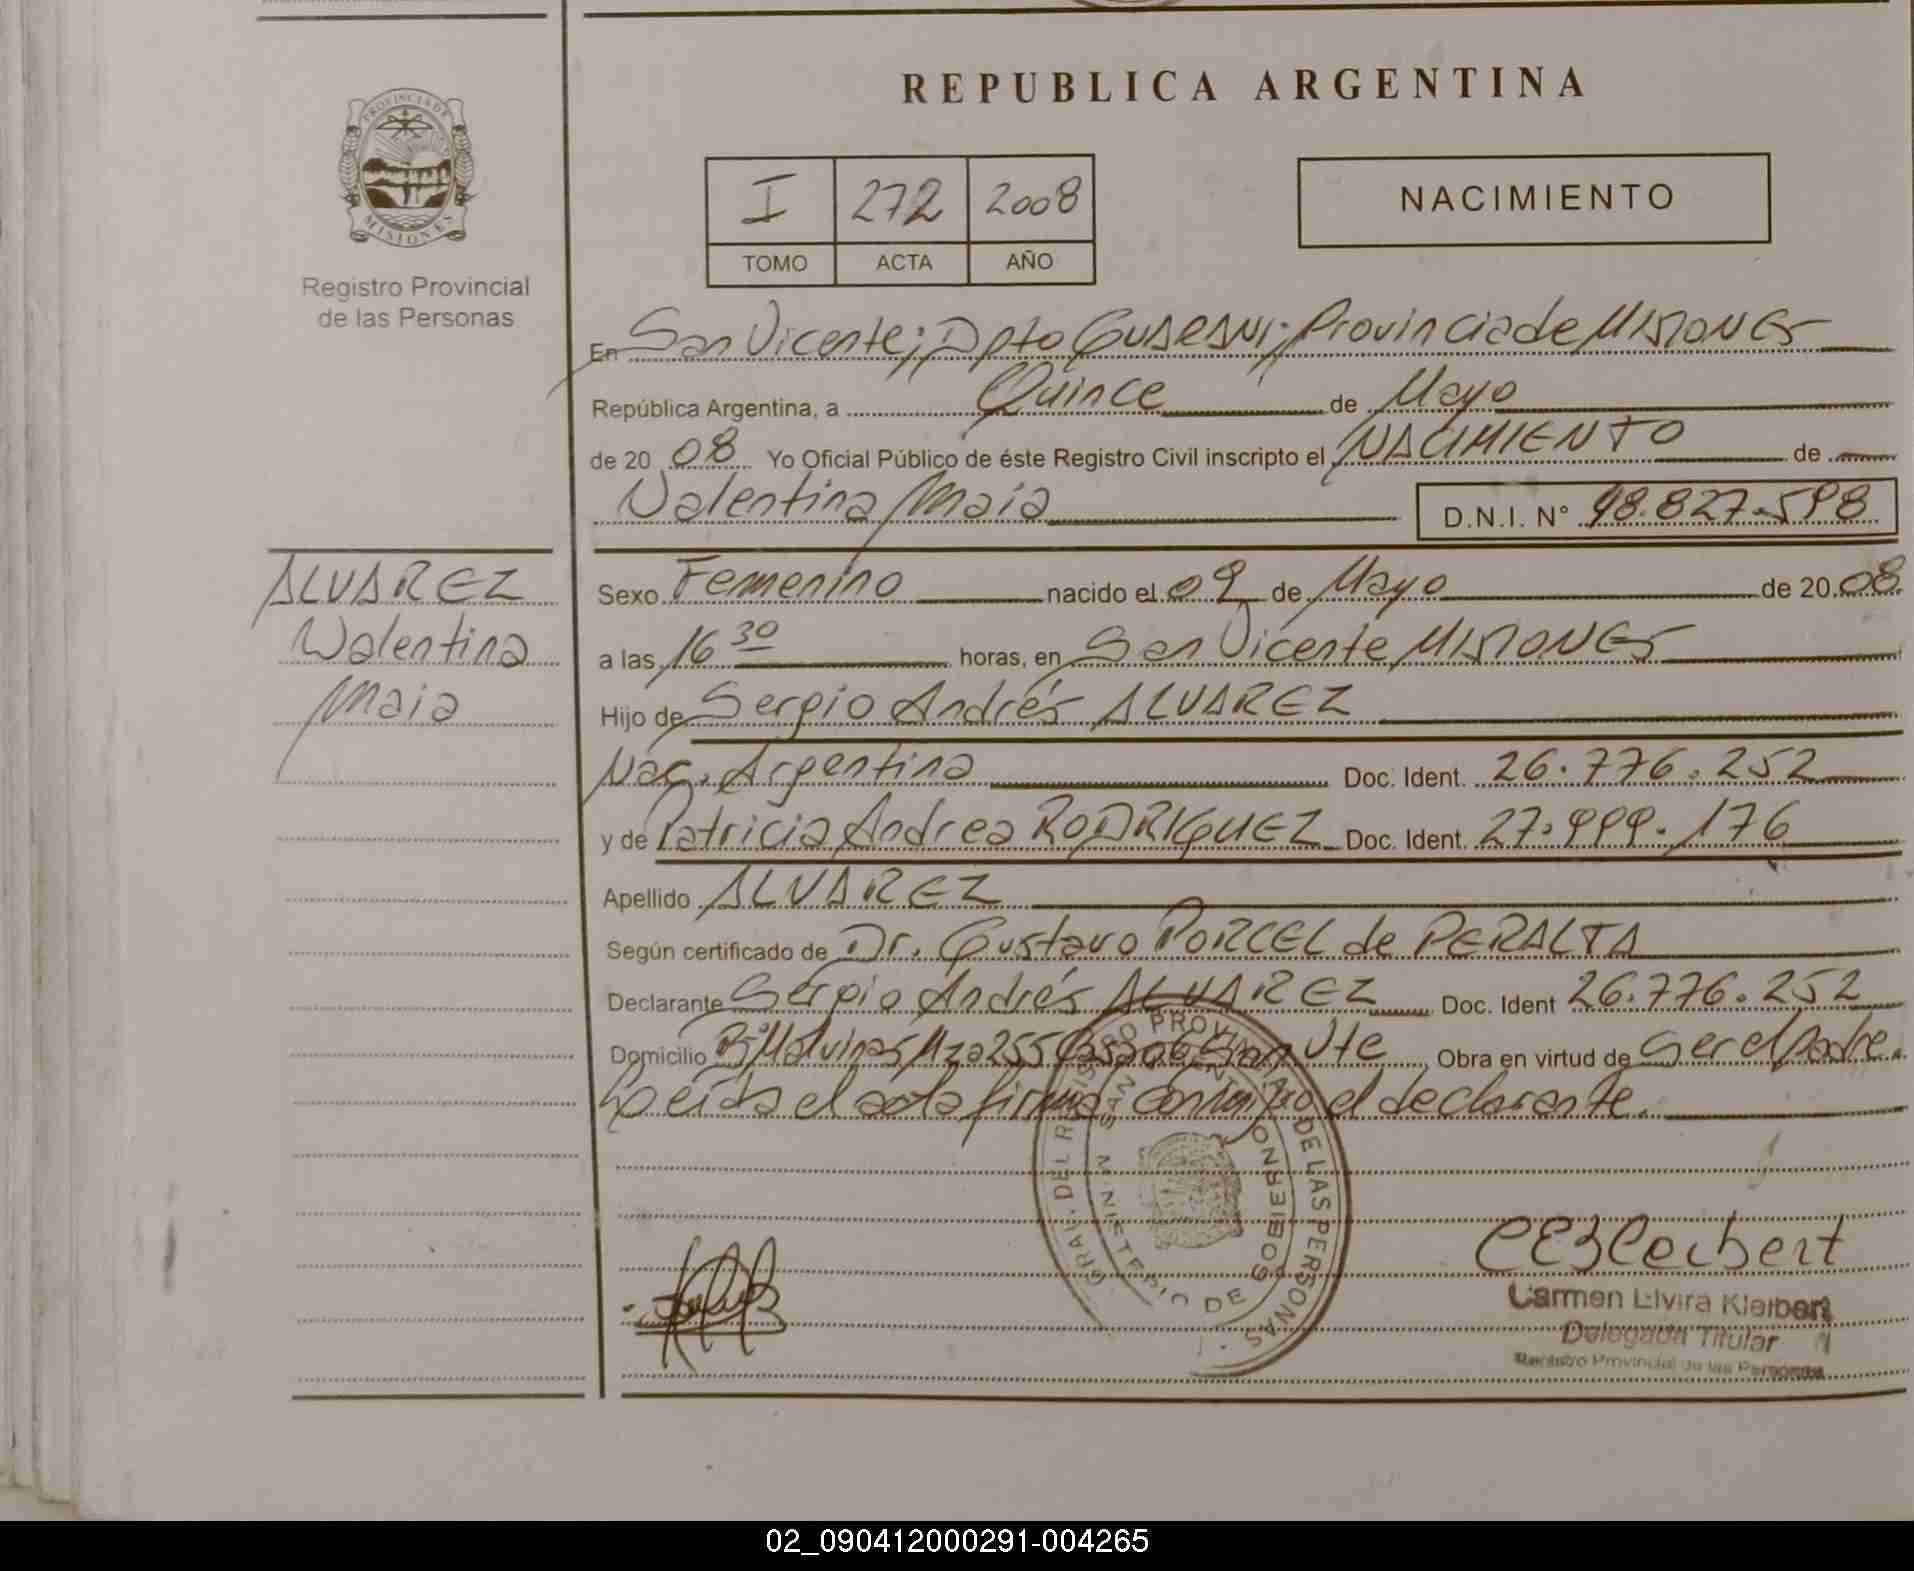 REPUBLICA ARGENTINA
PROVINCIA DE
MISIONES
Registro Provincial
de las Personas
I 272 2008
TOMO ACTA AÑO
NACIMIENTO
En San Vicente; Dpto GUARANI; Provincia de MISIONES
República Argentina, a Quince de Mayo
de 20 08 Yo Oficial Público de éste Registro Civil inscripto el NACIMIENTO de
Valentina Maia D.N.I. N° 48.827.598
ALVAREZ
Valentina
Maia
Sexo Femenino nacido el 09 de Mayo de 20 08
a las 16 30 horas, en San Vicente MISIONES
Hijo de Sergio Andrés ALVAREZ
Nac. Argentina Doc. Ident. 26.776.252
y de Patricia Andrea RODRIGUEZ Doc. Ident. 27.999.176
Apellido ALVAREZ
Según certificado de Dr. Gustavo PORCEL de PERALTA
Declarante Sergio Andrés ALVAREZ Doc. Ident 26.776.252
Domicilio Bº Malvinas Mza 255 San Vte Obra en virtud de ser el padre.
Leída el acta firma conmigo el declarante.
GRAL. DEL REGISTRO PROVINCIAL DE LAS PERSONAS
MINISTERIO DE GOBIERNO
SAN VICENTE
Carmen Elvira Kleibert
Delegada Titular
Registro Provincial de las Personas
02_090412000291-004265